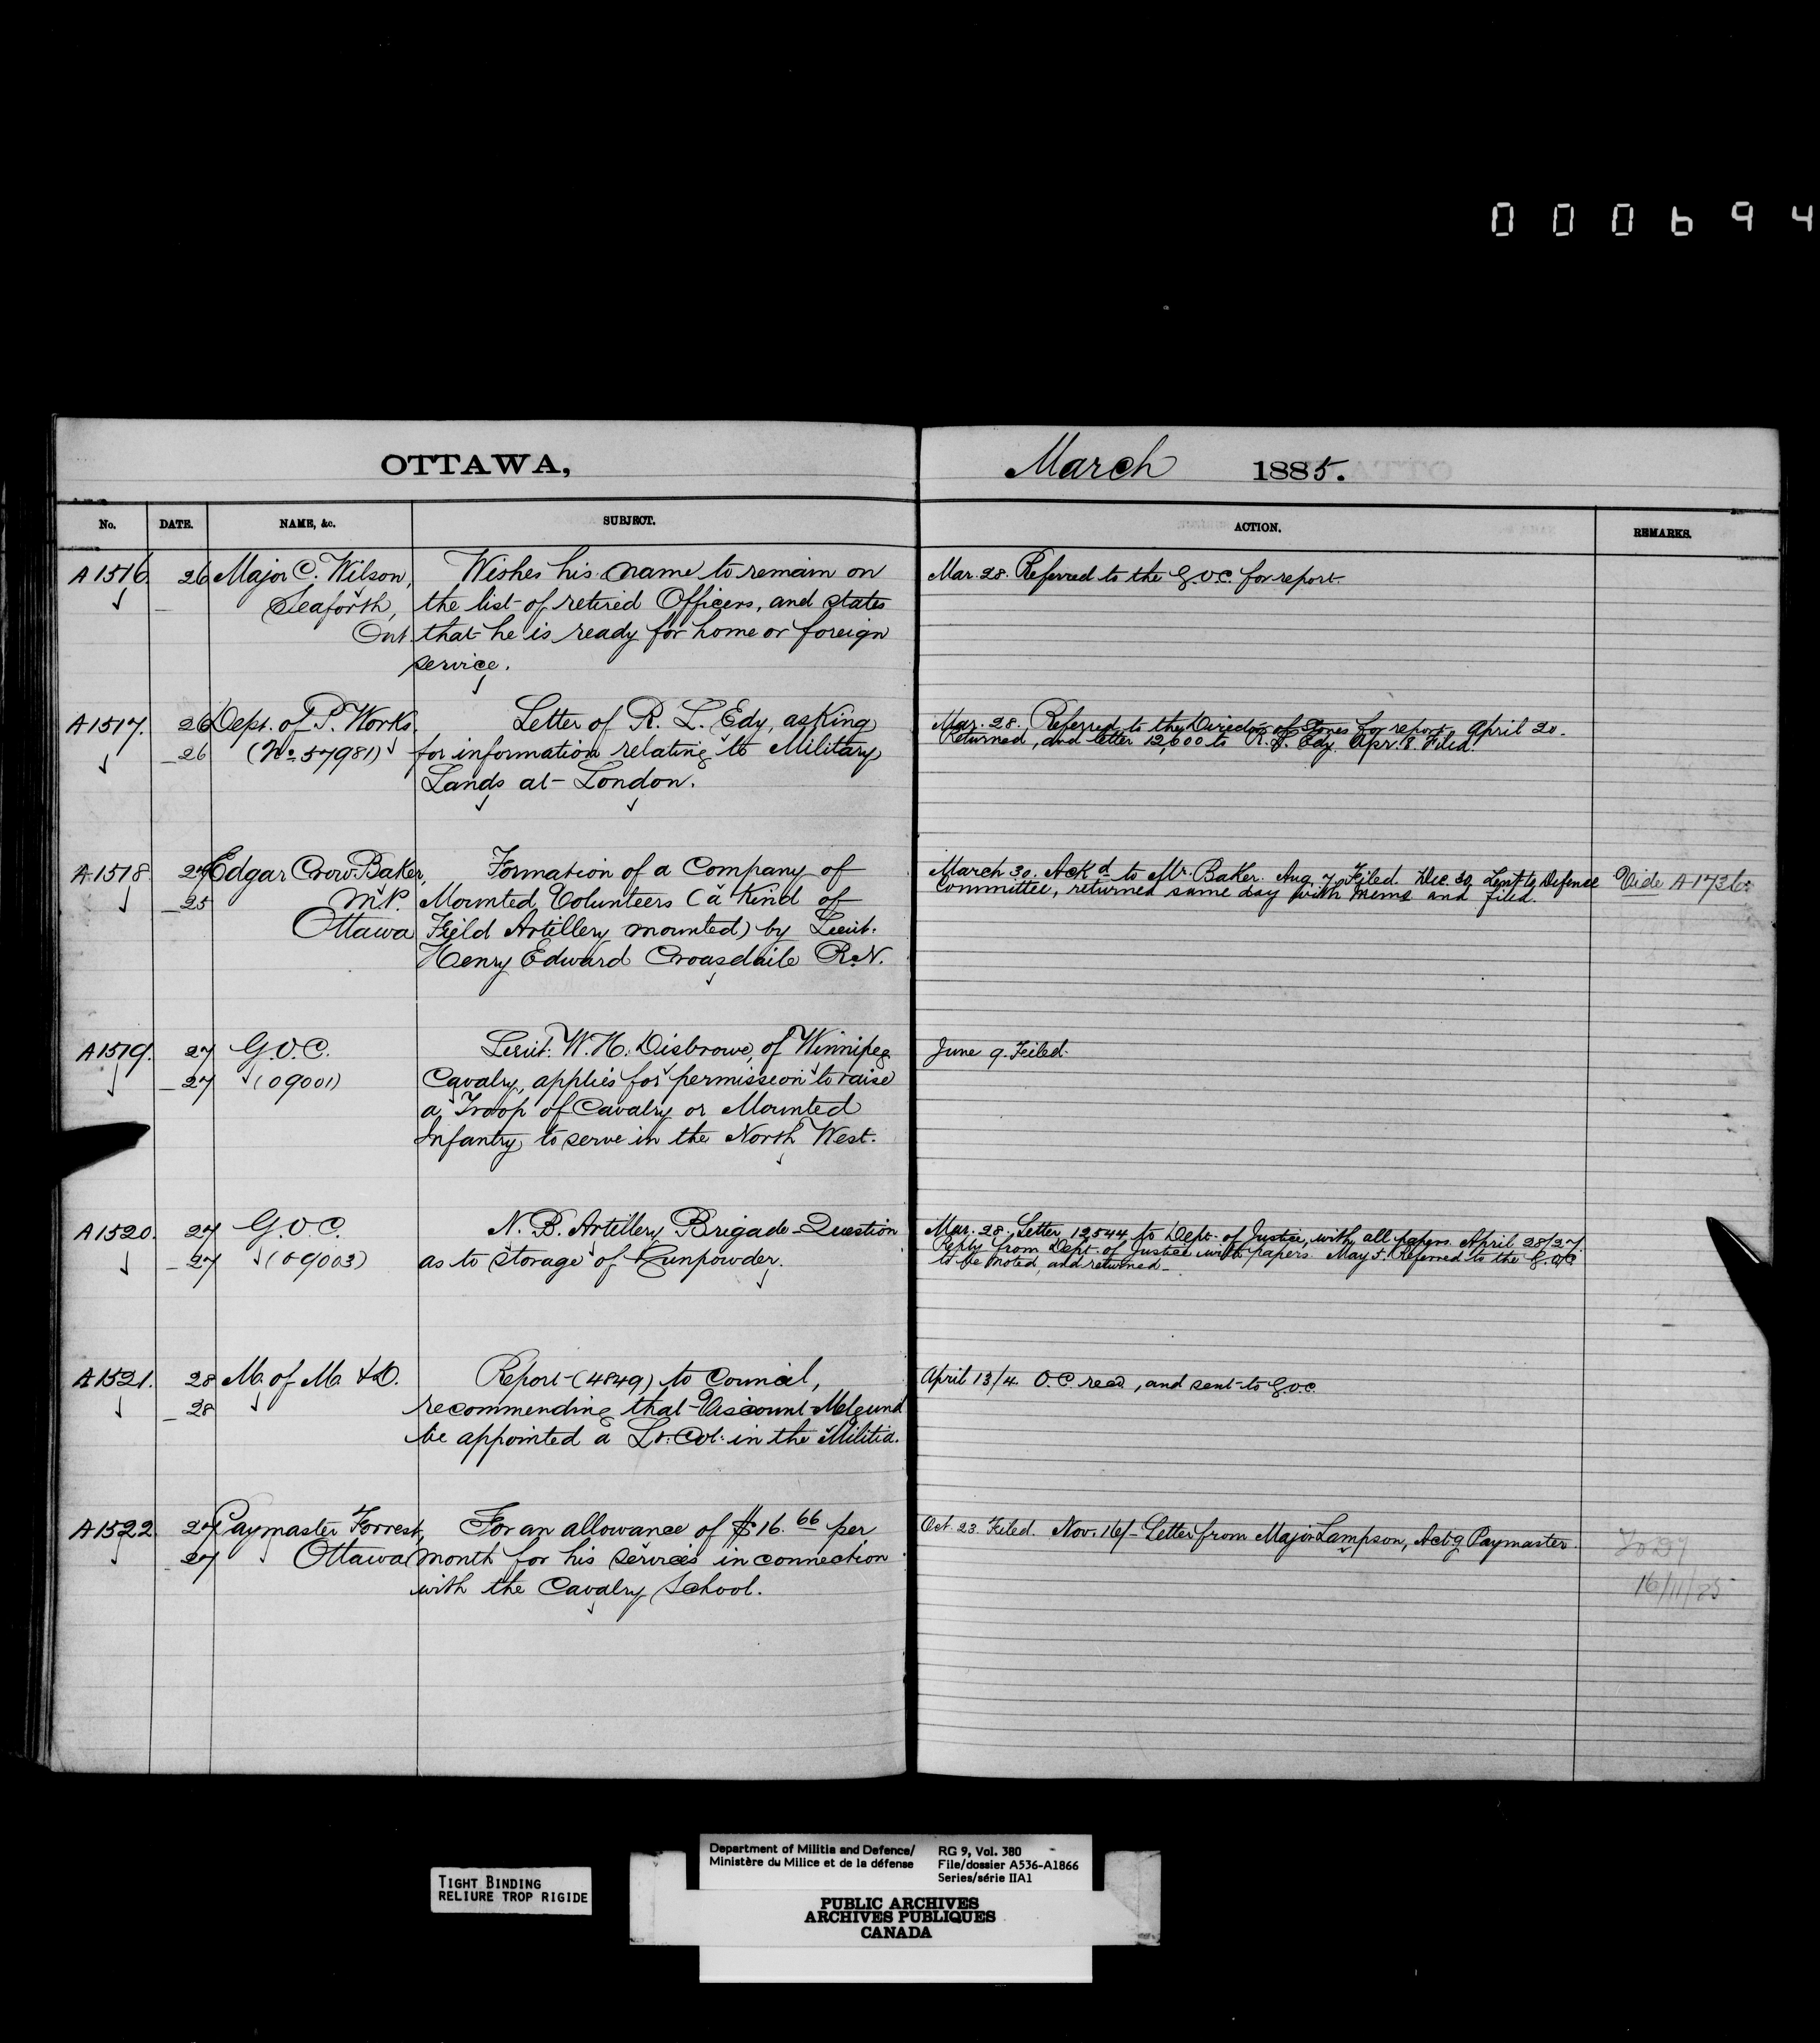 000694
OTTAWA,
March 1885.
No. DATE. NAME, &c. SUBJECT. ACTION. REMARKS.
A1516. 26 Major C. Wilson, Wishes his name to remain on
Seaforth, the list of retired Officers, and states
Ont. that he is ready for home or foreign
service.
Mar. 28. Referred to the G.O.C. for report.
A1517. 26 Dept. of P. Works. Letter of R. L. Edy, asking
26 (No. 57981) for information relating to Military
Lands at London.
Mar. 28. Referred to the Director of Stores for report. April 20.
Returned, and letter 12,600 to R. L. Edy. Apr. 8. Filed.
A1518. 27 Edgar Crow Baker, Formation of a Company of
25 M.P. Mounted Volunteers (a kind of
Ottawa Field Artillery mounted) by Lieut.
Henry Edward Croasdaile R.N.
March 30. Ackd to Mr. Baker. Aug 7. Filed. Dec. 30 Lent to Defence
Committee, returned same day with memo and filed.
Vide
A1519. 27 G.O.C. Lieut. W. H. Disbrowe, of Winnipeg
27 (09001) Cavalry, applies for permission to raise
a Troop of Cavalry or Mounted
Infantry to serve in the North West.
June 9. Filed.
A1520. 27 G.O.C. N. B. Artillery Brigade - Question
27 (09003) as to storage of Gunpowder.
Mar. 28. Letter 12544 to Dept. of Justice, with all papers. April 28/27.
Reply from Dept. of Justice with papers. May 5. Referred to the G.O.C.
to be noted, and returned.
A1521. 28 M. of M. & D. Report (4849) to Council,
28 recommending that Viscount Melgund
be appointed a Lt. Col. in the Militia.
April 13/4. O.C. recd, and sent to G.O.C.
A1522. 27 Paymaster Forrest, For an allowance of $16.66 per
27 Ottawa month for his services in connection
with the Cavalry School.
Oct. 23. Filed. Nov. 16/- Letter from Major Lampson, Actg Paymaster.
16/11/85
TIGHT BINDING
RELIURE TROP RIGIDE
Department of Militia and Defence/ RG 9, Vol. 380
Ministère du Milice et de la défense File/dossier A536-A1866
Series/série IIA1
PUBLIC ARCHIVES
ARCHIVES PUBLIQUES
CANADA